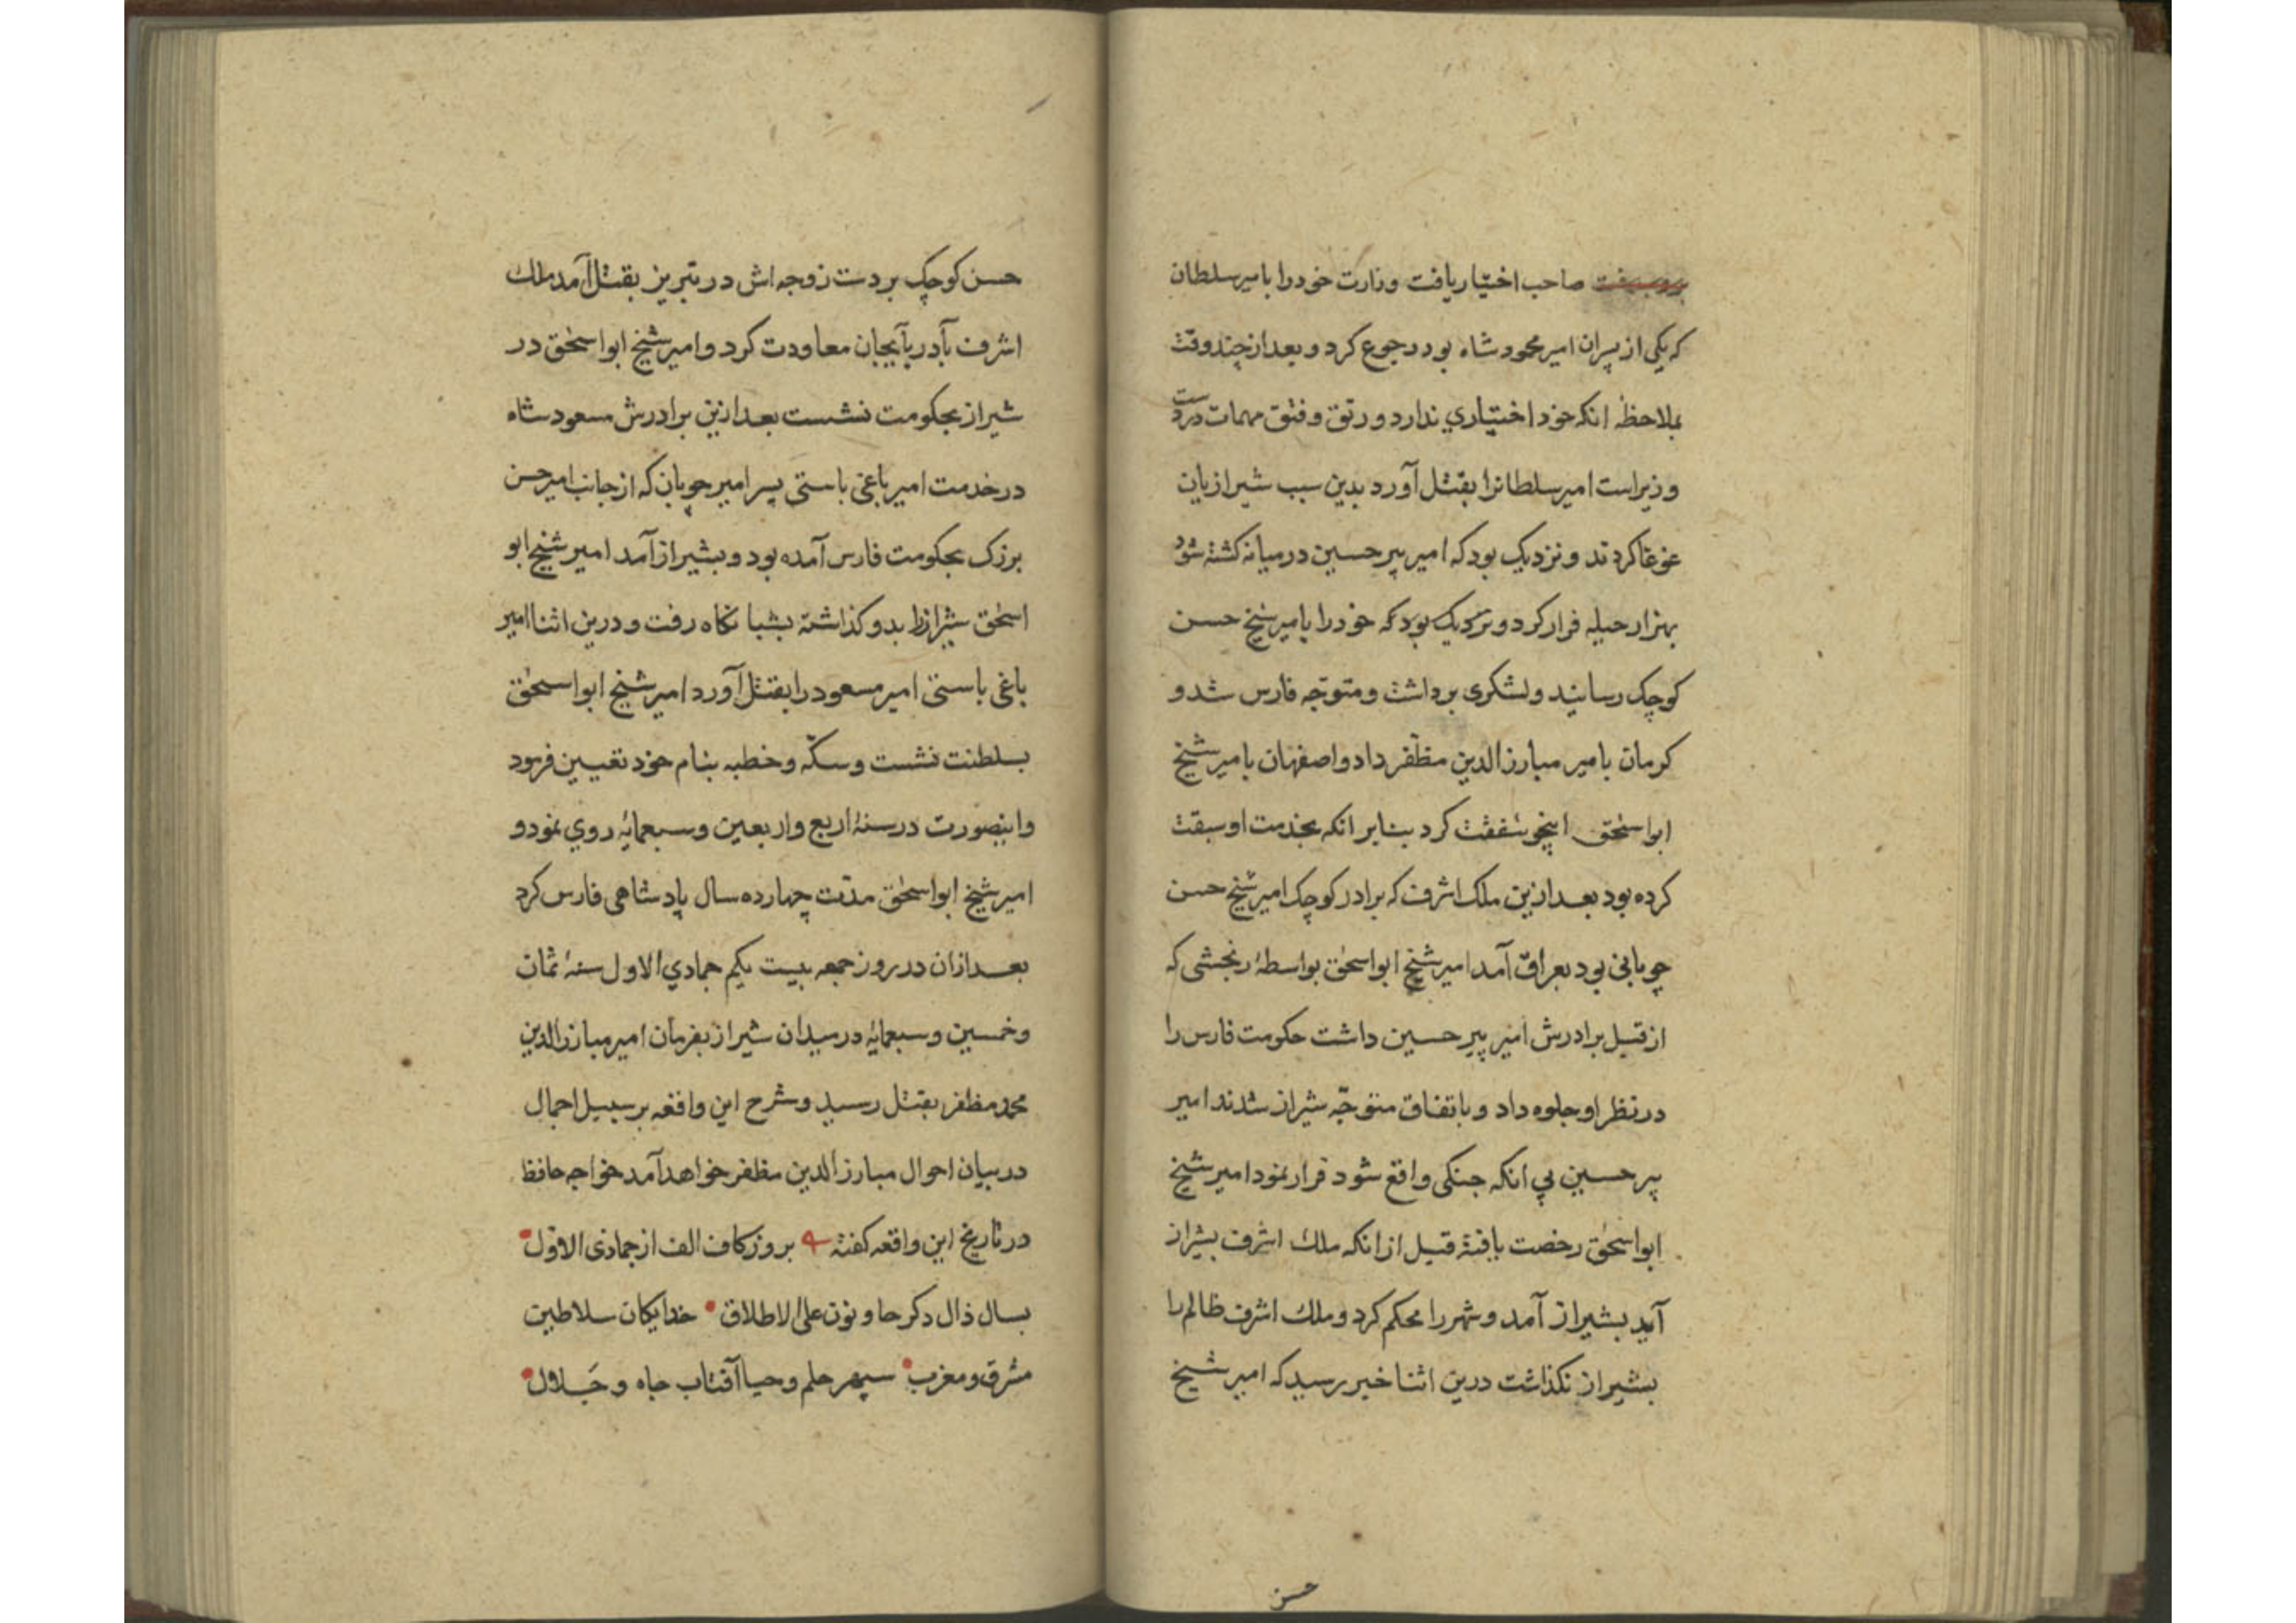 صاحب اختیار یافت وزارت خود را بامیر سلطان
که یکی از پسران امیر محمود شاه بود رجوع کرد و بعد از چند وقت
بملاحظهٔ انکه خود اختیاري ندارد و رتق و فتق مهمات در دست
وزیر است امیر سلطانرا بقتل آورد بدین سبب شیرازیان
غوغا کردند و نزدیک بود که امیر پیر حسین در میانه کشته شود
بهزار حیله فرار کرد و نزدیک بود که خود را بامیر شیخ حسن
کوچک رسانید و لشکری برداشت و متوجّه فارس شد و
کرمان بامیر مبارز الدین مظفّر داد و اصفهان بامیر شیخ
ابو اسحٰق اینجو شفقت کرد بنابر انکه بخدمت او سبقت
کرده بود بعد ازین ملک اشرف که برادر کوچک امیر شیخ حسن
چوبانی بود بعراق آمد امیر شیخ ابو اسحٰق بواسطهٔ رنجشی که
از قبل برادرش امیر پیر حسین داشت حکومت فارس را
در نظر او جلوه داد و باتفاق متوجّه شیراز شدند امیر
پیر حسین بي انکه جنکی واقع شود فرار نمود امیر شیخ
ابو اسحٰق رخصت یافتهٔ قبل از انکه ملک اشرف بشیراز
آید بشیراز آمد و شهر را محکم کرد و ملک اشرف ظالم را
بشیراز نکذاشت درین اثنا خبر رسید که امیر شیخ
حسن
حسن کوچک بر دست زوجه اش در تبریز بقتل آمد ملک
اشرف بآدربآیجان معاودت کرد و امیر شیخ ابو اسحٰق در
شیراز بحکومت نشست بعد ازین برادرش مسعود شاه
در خدمت امیر باغی باستی پسر امیر چوپان که از جانب امیر حسن
بزرک بحکومت فارس آمده بود و بشیراز آمد امیر شیخ ابو
اسحٰق شیراز را بدو کذاشته بشبانکاه رفت و درین اثنا امیر
باغی باستی امیر مسعود را بقتل آورد امیر شیخ ابو اسحٰق
بسلطنت نشست و سکّه و خطبه بنام خود تعیین فرمود
و اینصورت در سنهٔ اربع و اربعین و سبعمایهٔ روي نمود و
امیر شیخ ابو اسحٰق مدّت چهارده سال پادشاهی فارس کرد
بعد ازان در روز جمعه بیست یکم جمادي الاول سنهٔ ثمان
و خمسین و سبعمایهٔ در میدان شیراز بفرمان امیر مبارز الدین
محمد مظفر بقتل رسید و شرح این واقعه بر سبیل اجمال
در بیان احوال مبارز الدین مظفر خواهد آمد خواجه حافظ
در تاریخ این واقعه کفته بروز کاف الف از جمادی الاوّل
بسال ذال دکر حا و نون علی الاطلاق خدایکان سلاطین
مشرق و مغرب سپهر حلم و حیا آفتاب جاه و جَلال